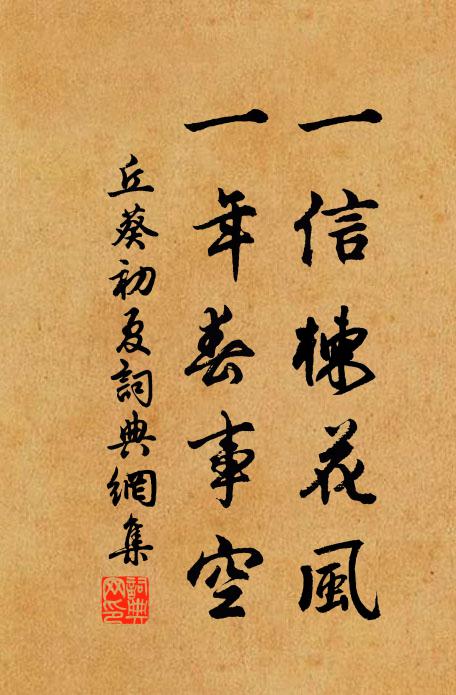 一信楝花風
一年春事空
丘葵初夏詞典網集
詞典
網印